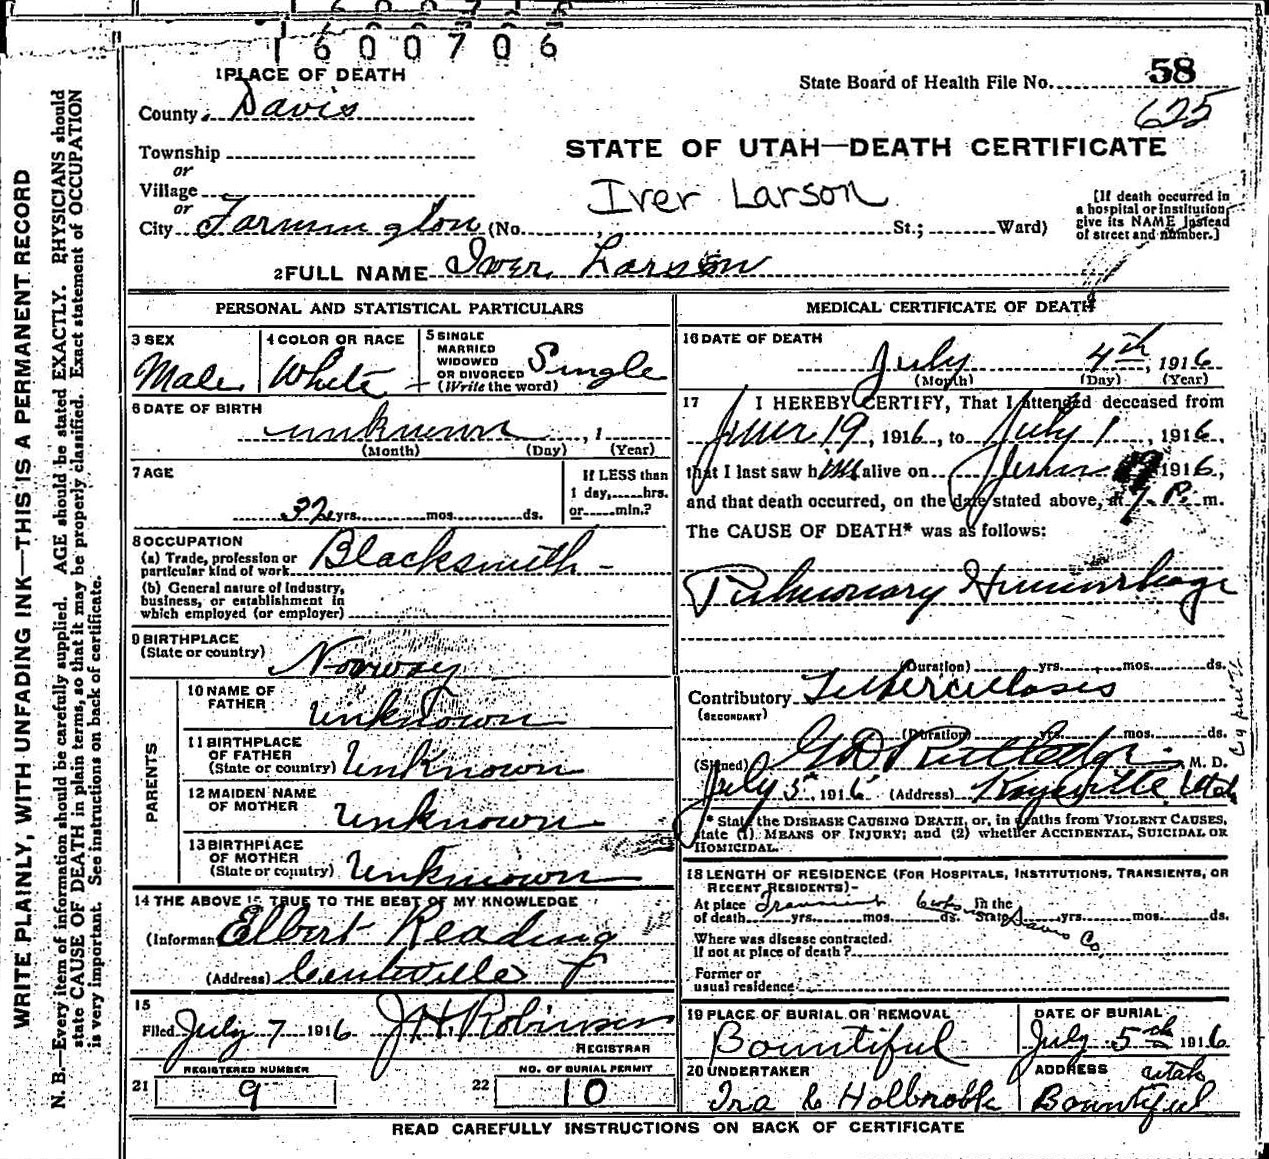 1600706
1 PLACE OF DEATH
State Board of Health File No. 58
625
County Davis
Township
or
Village
or
City Farmington (No. St.; Ward)
STATE OF UTAH—DEATH CERTIFICATE
Iver Larson
[If death occurred in
a hospital or institution,
give its NAME instead
of street and number.]
2 FULL NAME Iver Larson
PERSONAL AND STATISTICAL PARTICULARS
3 SEX
Male
4 COLOR OR RACE
White
5 SINGLE
MARRIED
WIDOWED
OR DIVORCED
(Write the word)
Single
6 DATE OF BIRTH
unknown , 1
(Month) (Day) (Year)
7 AGE
32 yrs. mos. ds.
If LESS than
1 day, hrs.
or min.?
8 OCCUPATION
(a) Trade, profession or
particular kind of work Blacksmith
(b) General nature of industry,
business, or establishment in
which employed (or employer)
9 BIRTHPLACE
(State or country) Norway
PARENTS
10 NAME OF
FATHER
Unknown
11 BIRTHPLACE
OF FATHER
(State or country) Unknown
12 MAIDEN NAME
OF MOTHER
Unknown
13 BIRTHPLACE
OF MOTHER
(State or country) Unknown
14 THE ABOVE IS TRUE TO THE BEST OF MY KNOWLEDGE
(Informan Elbert Reading
(Address) Centerville
15
Filed July 7 1916 J H. Robinson
REGISTRAR
REGISTERED NUMBER
21 9
NO. OF BURIAL PERMIT
22 10
MEDICAL CERTIFICATE OF DEATH
16 DATE OF DEATH
July 4th, 1916
(Month) (Day) (Year)
17 I HEREBY CERTIFY, That I attended deceased from
June 19, 1916, to July 1, 1916,
that I last saw him alive on 1916,
and that death occurred, on the date stated above, at 7 P. m.
The CAUSE OF DEATH* was as follows:
Pulmonary Hemorrhage
(Duration) yrs. mos. ds.
Contributory Tuberculosis
(SECONDARY)
(Duration) yrs. mos. ds.
(Signed) G D Rutledge M. D.
July 5th, 1916 (Address) Kaysville Utah
* State the DISEASE CAUSING DEATH, or, in deaths from VIOLENT CAUSES,
state (1) MEANS OF INJURY; and (2) whether ACCIDENTAL, SUICIDAL OR
HOMICIDAL.
18 LENGTH OF RESIDENCE (FOR HOSPITALS, INSTITUTIONS, TRANSIENTS, OR
RECENT RESIDENTS)-
At place In the
of death Transient yrs. mos. ds. State Davis Co yrs. mos. ds.
Where was disease contracted,
If not at place of death?
Former or
usual residence
19 PLACE OF BURIAL OR REMOVAL
Bountiful
DATE OF BURIAL
July 5th 1916
20 UNDERTAKER
ADDRESS Utah
Bountiful
READ CAREFULLY INSTRUCTIONS ON BACK OF CERTIFICATE
WRITE PLAINLY, WITH UNFADING INK—THIS IS A PERMANENT RECORD
N. B.—Every item of information should be carefully supplied. AGE should be stated EXACTLY. PHYSICIANS should
state CAUSE OF DEATH in plain terms, so that it may be properly classified. Exact statement of OCCUPATION
is very important. See instructions on back of certificate.